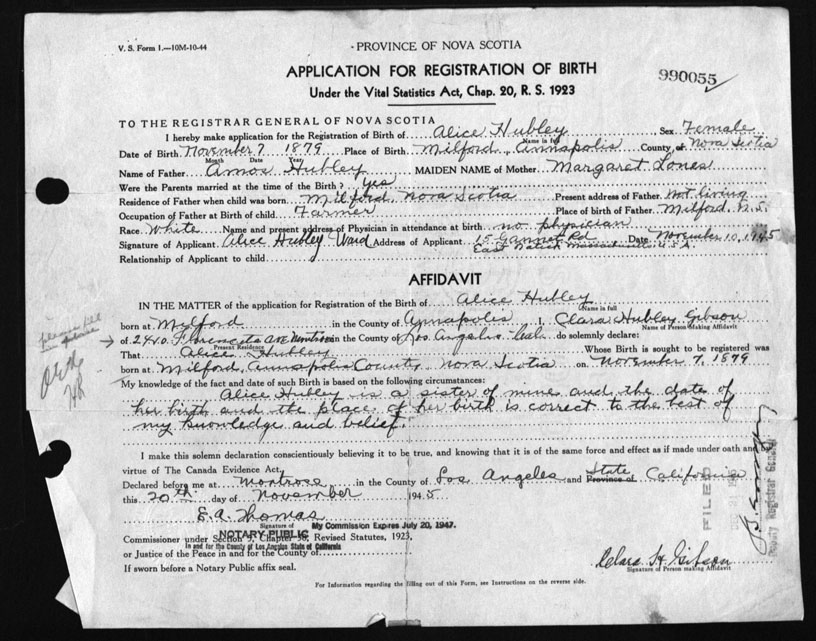 V. S. Form 1.—10M-10-44
PROVINCE OF NOVA SCOTIA
APPLICATION FOR REGISTRATION OF BIRTH
990055
Under the Vital Statistics Act, Chap. 20, R. S. 1923
TO THE REGISTRAR GENERAL OF NOVA SCOTIA
I hereby make application for the Registration of Birth of Alice Hubley, Sex Female
Name in full
Date of Birth November 7 1879 Place of Birth Milford, Annapolis County of Nova Scotia
Month Date Year
Name of Father Amos Hubley, MAIDEN NAME of Mother Margaret Lones
Were the Parents married at the time of the Birth? Yes
Residence of Father when child was born Milford, Nova Scotia Present address of Father Not living
Occupation of Father at Birth of child Farmer Place of birth of Father Milford N.S.
Race White Name and present address of Physician in attendance at birth no physician
Signature of Applicant Alice Hubley Ward Address of Applicant Rd Date November 10, 1945
East Massachusetts U.S.A.
Relationship of Applicant to child
AFFIDAVIT
IN THE MATTER of the application for Registration of the Birth of Alice Hubley
Name in full
born at Milford in the County of Annapolis I, Clara Hubley Gibson
Name of Person Making Affidavit
of 2440 Florencita Ave Montrose in the County of Los Angeles Cal. do solemnly declare:
Present Residence
That Alice Hubley Whose Birth is sought to be registered was
born at Milford, Annapolis County, Nova Scotia on November 7, 1879
My knowledge of the fact and date of such Birth is based on the following circumstances:
Alice Hubley is a sister of mine and the date of
her birth and the place of her birth is correct to the best of
my knowledge and belief.
I make this solemn declaration conscientiously believing it to be true, and knowing that it is of the same force and effect as if made under oath and by
virtue of The Canada Evidence Act,
Declared before me at Montrose in the County of Los Angeles and State Province of California
this 20th day of November 1945
E. A. Thomas
Signature of
My Commission Expires July 20, 1947.
Commissioner under Section 5, Chapter 36, Revised Statutes, 1923,
NOTARY PUBLIC
In and for the County of Los Angeles State of California
or Justice of the Peace in and for the County of
If sworn before a Notary Public affix seal.
Clara H. Gibson
Signature of Person making Affidavit
For Information regarding the filling out of this Form, see Instructions on the reverse side.
FILED
Deputy Registrar General